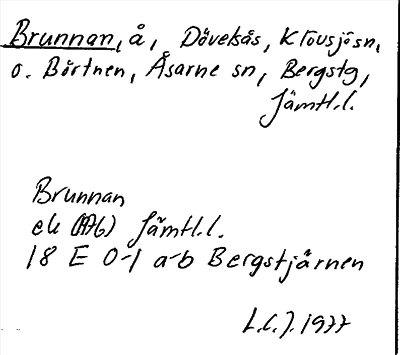 Brunnan, å, Dövelsås, Klövsjö sn,
o. Börtnen, Åsarne sn, Bergs tg,
Jämtl.l.
Brunnan
ek (1976) Jämtl.l.
18 E 0-1 a-b Bergstjärnen
L.C.J. 1977